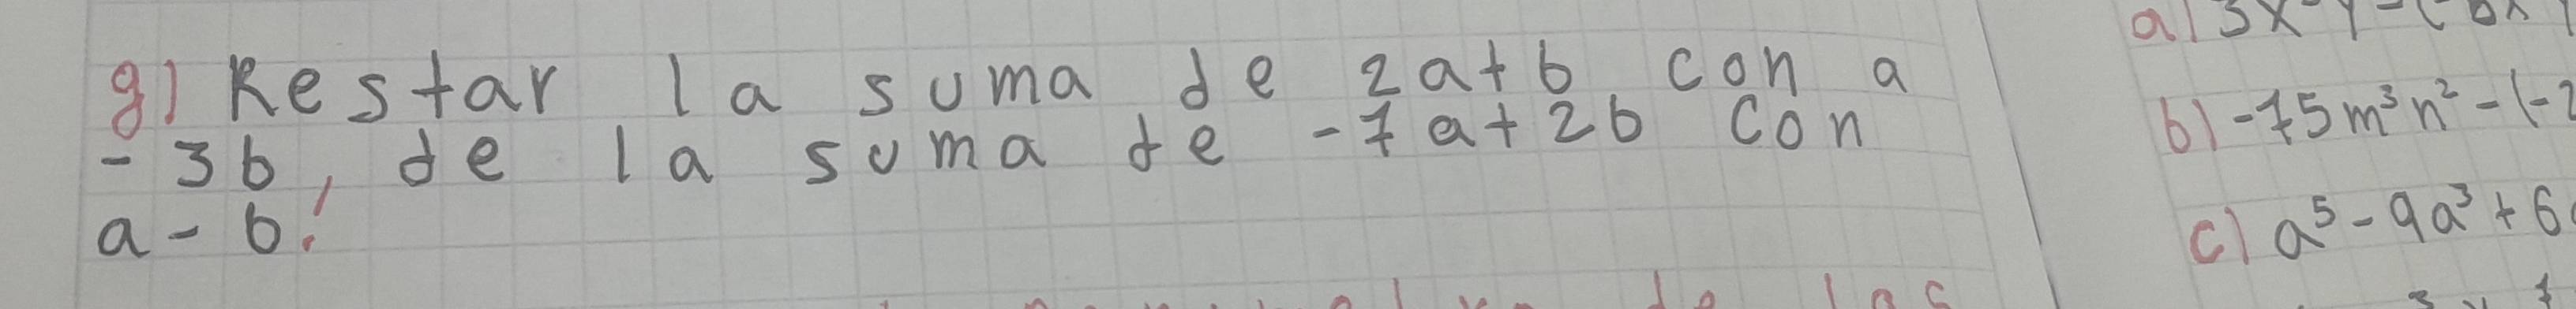 g) Restar la suma de 2a+b con a
-3b, de la suma de -7a+2b con
a-b.
b) -75m³n²-(-2
c) a⁵-9a³+6